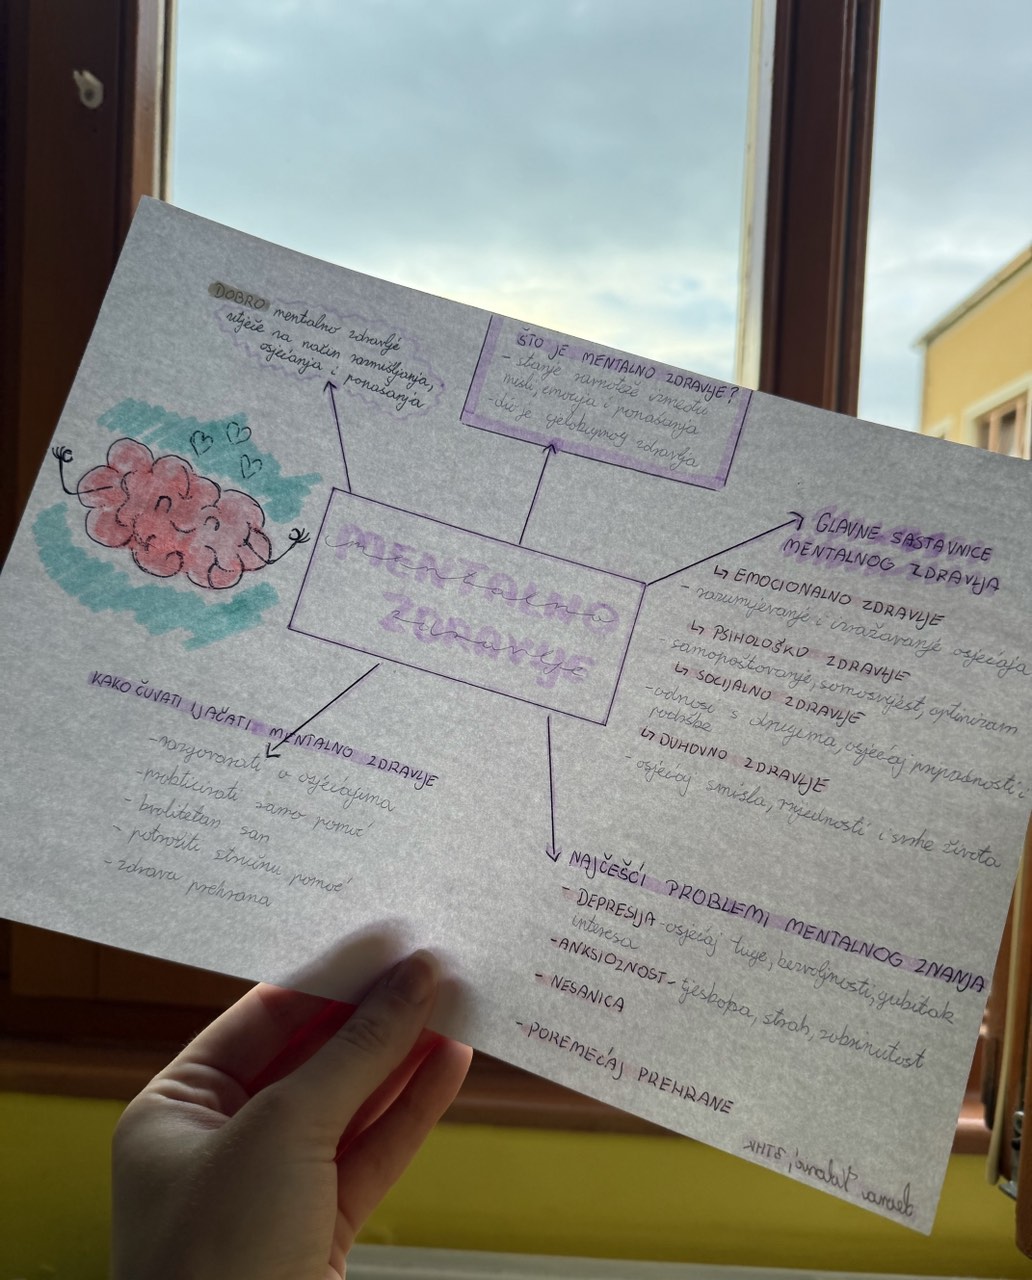 DOBRO mentalno zdravlje
utječe na način razmišljanja,
osjećanja i ponašanja
ŠTO JE MENTALNO ZDRAVLJE?
- stanje ravnoteže između
misli, emocija i ponašanja
- dio je cjelokupnog zdravlja
MENTALNO
mentalno
ZDRAVLJE
zdravlje
GLAVNE SASTAVNICE
MENTALNOG ZDRAVLJA
↳ EMOCIONALNO ZDRAVLJE
- razumjevanje i izražavanje osjećaja
↳ PSIHOLOŠKO ZDRAVLJE
- samopoštovanje, samosvijest, optimizam
↳ SOCIJALNO ZDRAVLJE
- odnosi s drugima, osjećaj pripadnosti i
podrške
↳ DUHOVNO ZDRAVLJE
- osjećaj smisla, vrijednosti i svrhe života
KAKO ČUVATI I JAČATI MENTALNO ZDRAVLJE
- razgovarati o osjećajima
- prakticirati samo pomoć
- kvalitetan san
- potražiti stručnu pomoć
- zdrava prehrana
NAJČEŠĆI PROBLEMI MENTALNOG ZNANJA
- DEPRESIJA - osjećaj tuge, bezvoljnosti, gubitak
interesa
- ANKSIOZNOST - tjeskoba, strah, zabrinutost
- NESANICA
- POREMEĆAJ PREHRANE